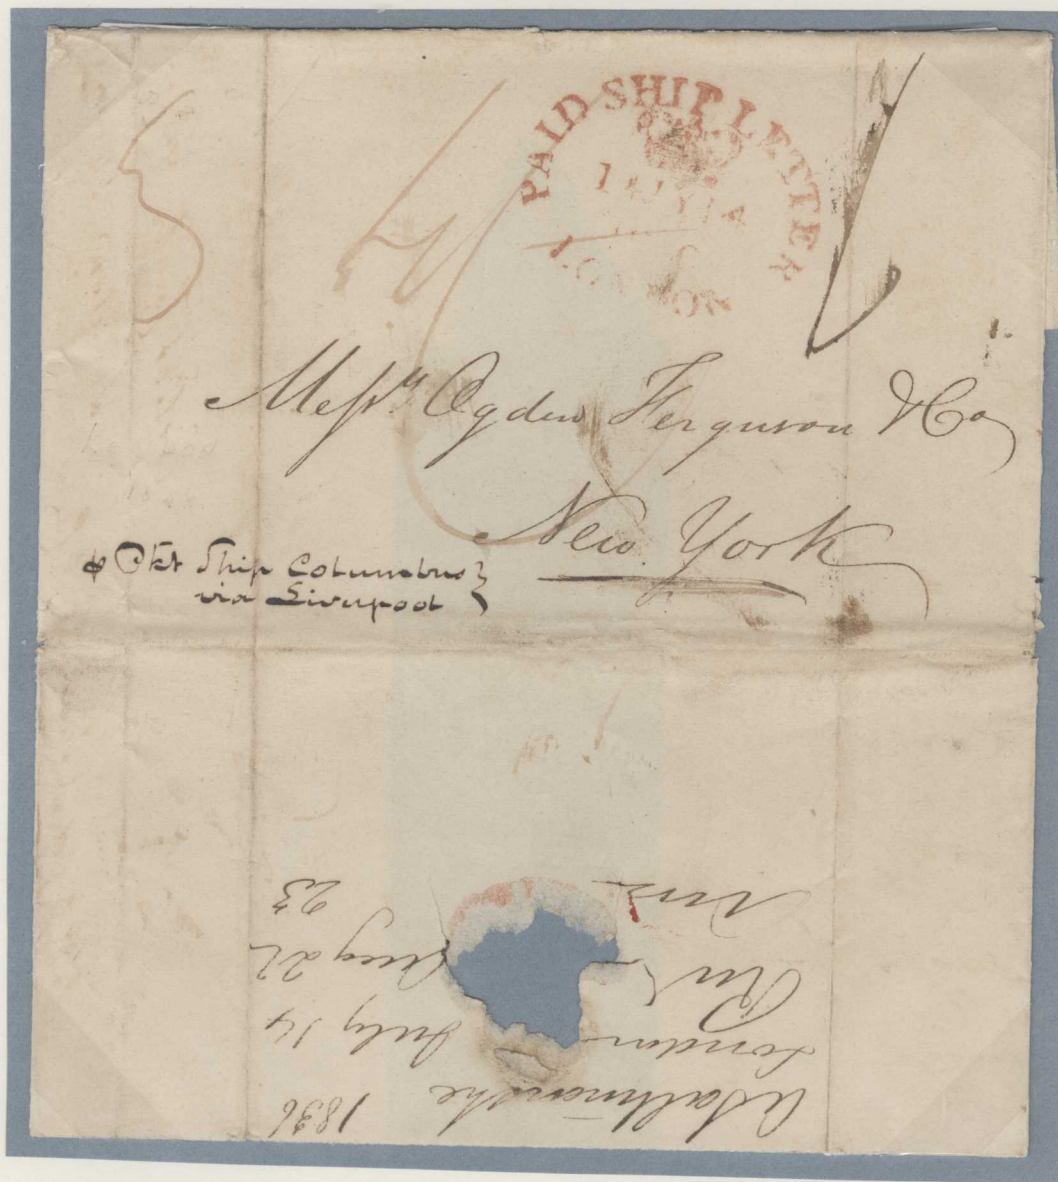 PAID SHIP LETTER
14 JY 14
LONDON
Messrs Ogden Ferguson & Co
New York
Pkt Ship Columbus
via Liverpool
1836
London July 14
Aug 22
23